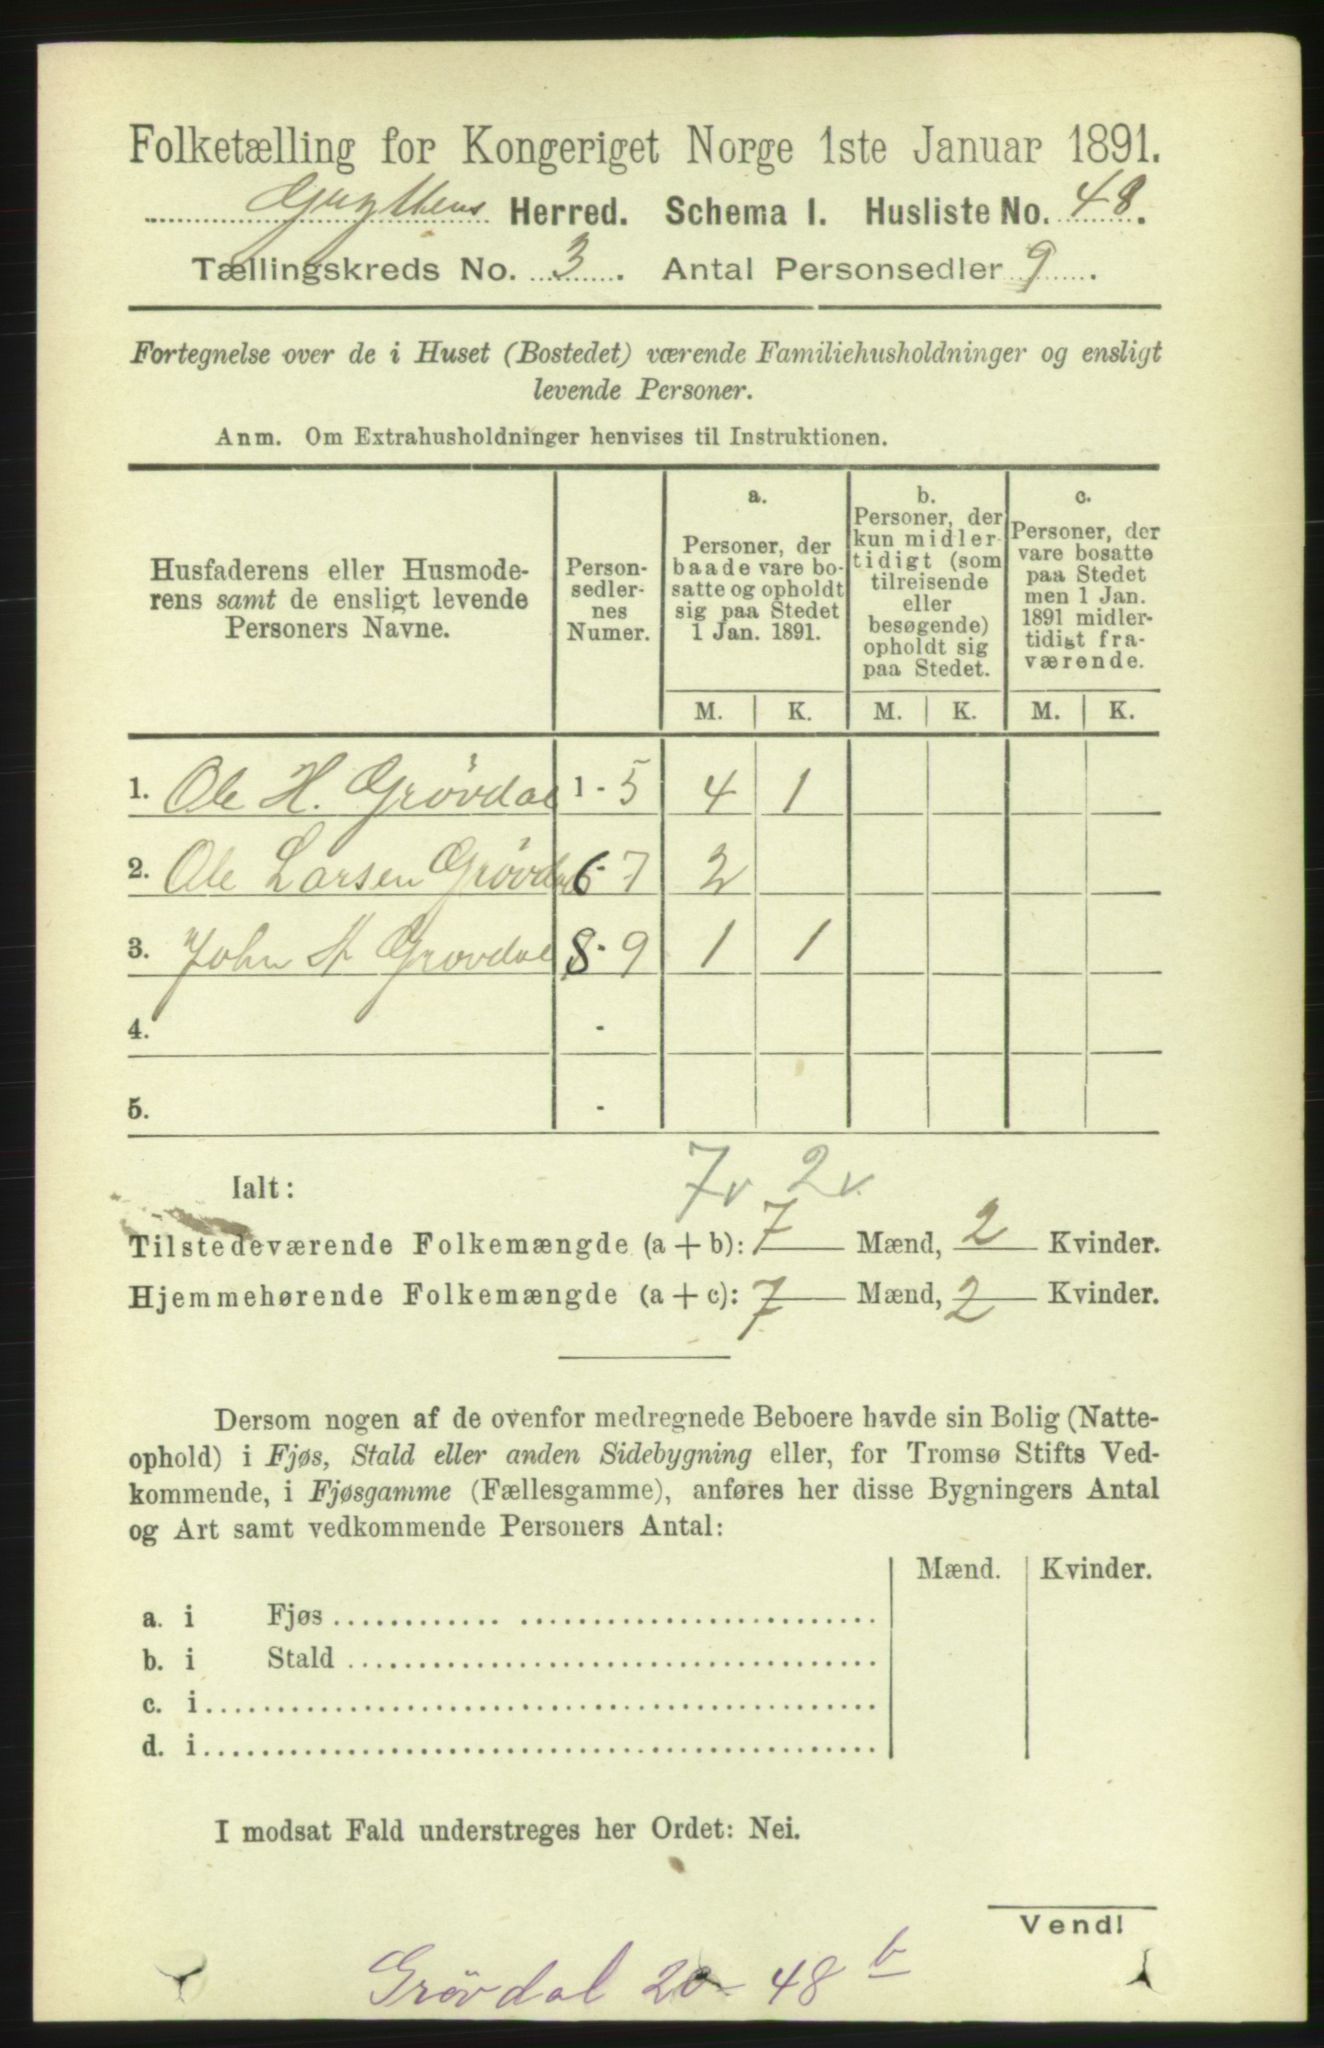 Folketælling for Kongeriget Norge 1ste Januar 1891.
Gryttens Herred. Schema I. Husliste No. 48.
Tællingskreds No. 3. Antal Personsedler 9.
Fortegnelse over de i Huset (Bostedet) værende Familiehusholdninger og ensligt
levende Personer.
Anm. Om Extrahusholdninger henvises til Instruktionen.
Husfaderens eller Husmode-
rens samt de ensligt levende
Personers Navne.
Person-
sedler-
nes
Numer.
a.
Personer, der
baade vare bo-
satte og opholdt
sig paa Stedet
1 Jan. 1891.
b.
Personer, der
kun midler-
tidigt (som
tilreisende
eller
besøgende)
opholdt sig
paa Stedet.
c.
Personer, der
vare bosatte
paa Stedet
men 1 Jan.
1891 midler-
tidigt fra-
værende.
M. K. M. K. M. K.
1. Ole H. Grövdal 1 - 5 4 1
2. Ole Larsen Grövdal 6 - 7 2
3. John A Grovdal 8 - 9 1 1
4. -
5. -
Ialt: 7v 2v.
Tilstedeværende Folkemængde (a + b): 7 Mænd, 2 Kvinder.
Hjemmehørende Folkemængde (a + c): 7 Mænd, 2 Kvinder.
Dersom nogen af de ovenfor medregnede Beboere havde sin Bolig (Natte-
ophold) i Fjøs, Stald eller anden Sidebygning eller, for Tromsø Stifts Ved-
kommende, i Fjøsgamme (Fællesgamme), anføres her disse Bygningers Antal
og Art samt vedkommende Personers Antal:
Mænd. Kvinder.
a. i Fjøs
b. i Stald
c. i
d. i
I modsat Fald understreges her Ordet: Nei.
Vend!
Grövdal 20 - 48 b